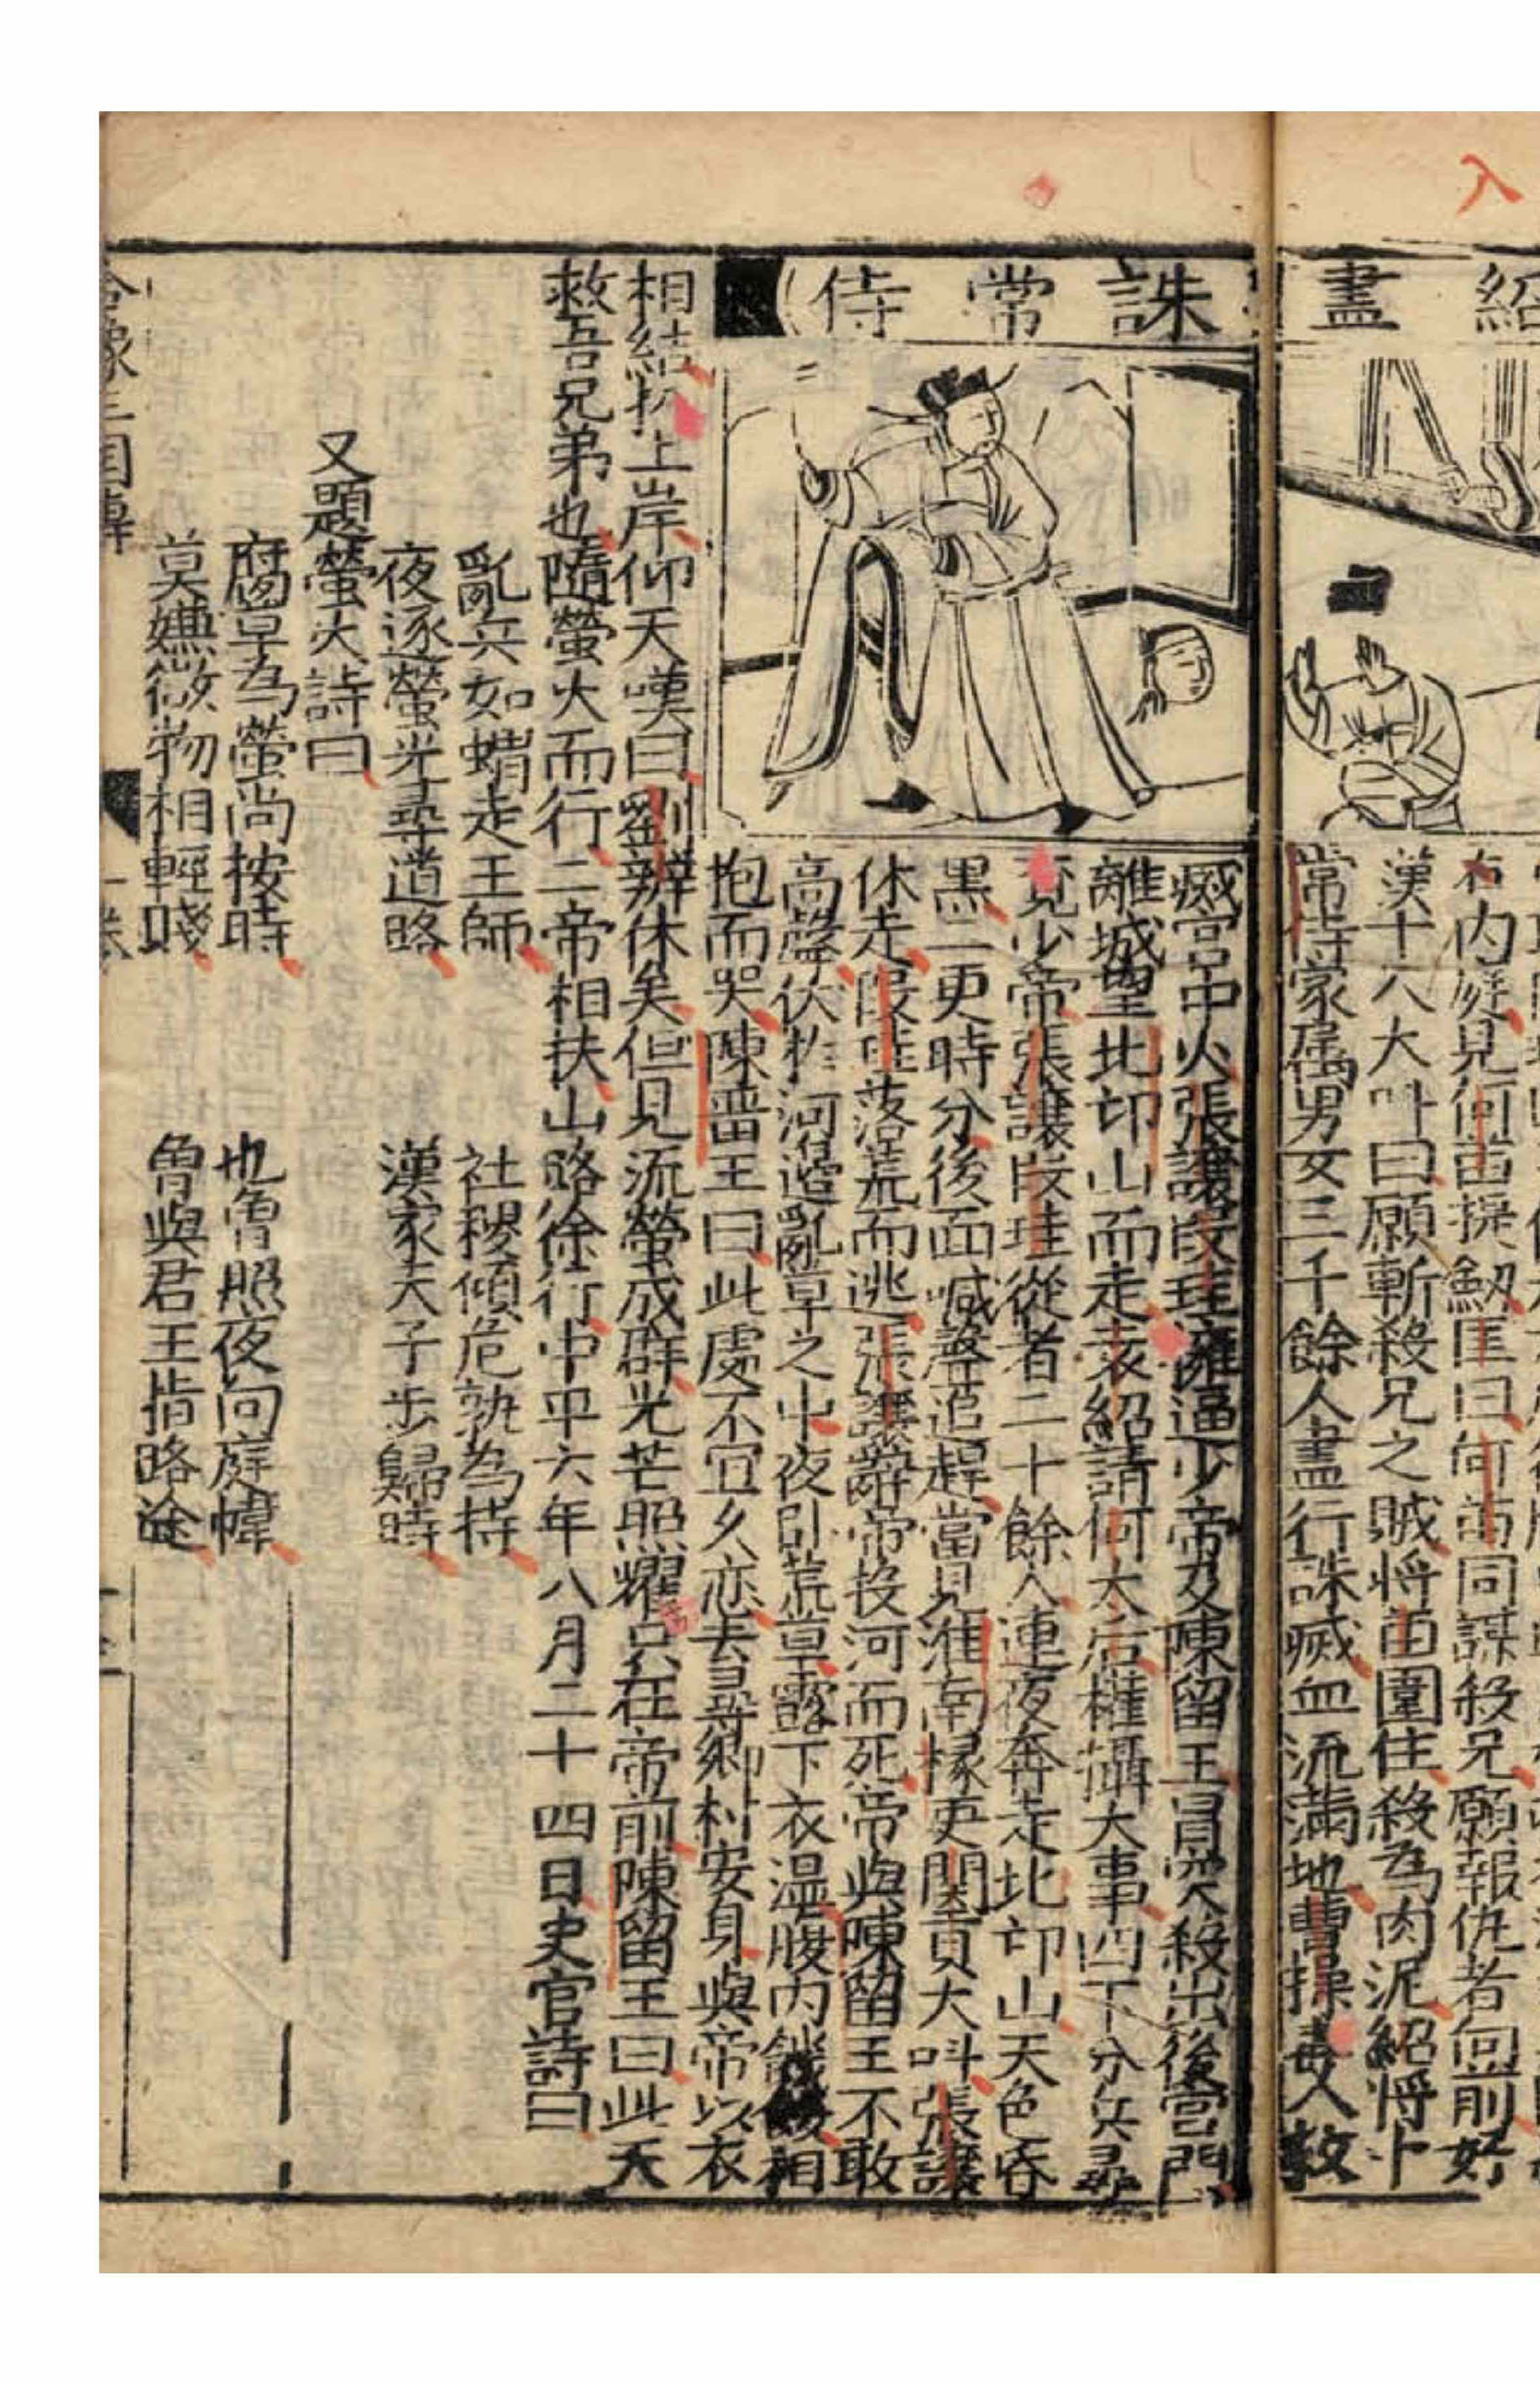 入
紹
盡誅常侍
右內庭見何苗提劍匡曰何苗同謀殺兄願報仇者向前好
漢十八大叫曰願斬殺兄之賊將苗圍住殺為肉泥紹將十
常侍家屬男女三千餘人盡行誅滅血流滿地曹操毒人救
滅宮中火張讓段珪擁逼少帝及陳留王冒突殺出後宮門
離城望北邙山而走袁紹請何太后權攝大事四下分兵尋
覓少帝張讓段珪從者二十餘人連夜奔走北邙山天色昏
黑二更時分後面喊聲追趕當見淮南椽吏閔貢大叫張讓
休走段珪落荒而逃張讓辭帝投河而死帝與陳留王不敢
高聲伏於河邊亂草之中夜卧荒草露下衣濕腹內饑餒相
抱而哭陳畱王曰此處不宜久恋去尋鄉村安身與帝以衣
相結扒上岸仰天嘆曰劉辨休矣但見流螢成群光芒照耀只在帝前陳留王曰此天
救吾兄弟也隨螢火而行二帝相扶山路徐行中平六年八月二十四日史官詩曰
亂兵如蝟走王師 社稷傾危孰為持
夜逐螢光尋道路 漢家天子步歸時
又題螢火詩曰
腐草為螢尚按時 也曾照夜向庭幃
莫嫌微物相輕賤 曾與君王指路途
全像三国傳 一卷